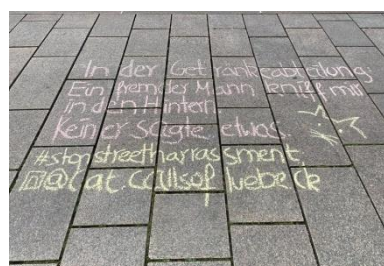 In der Getränkeabteilung:
Ein fremder Mann kniff mir
in den Hintern
Keiner sagte etwas.
#stopstreetharrassment
@cat.callsof_luebeck